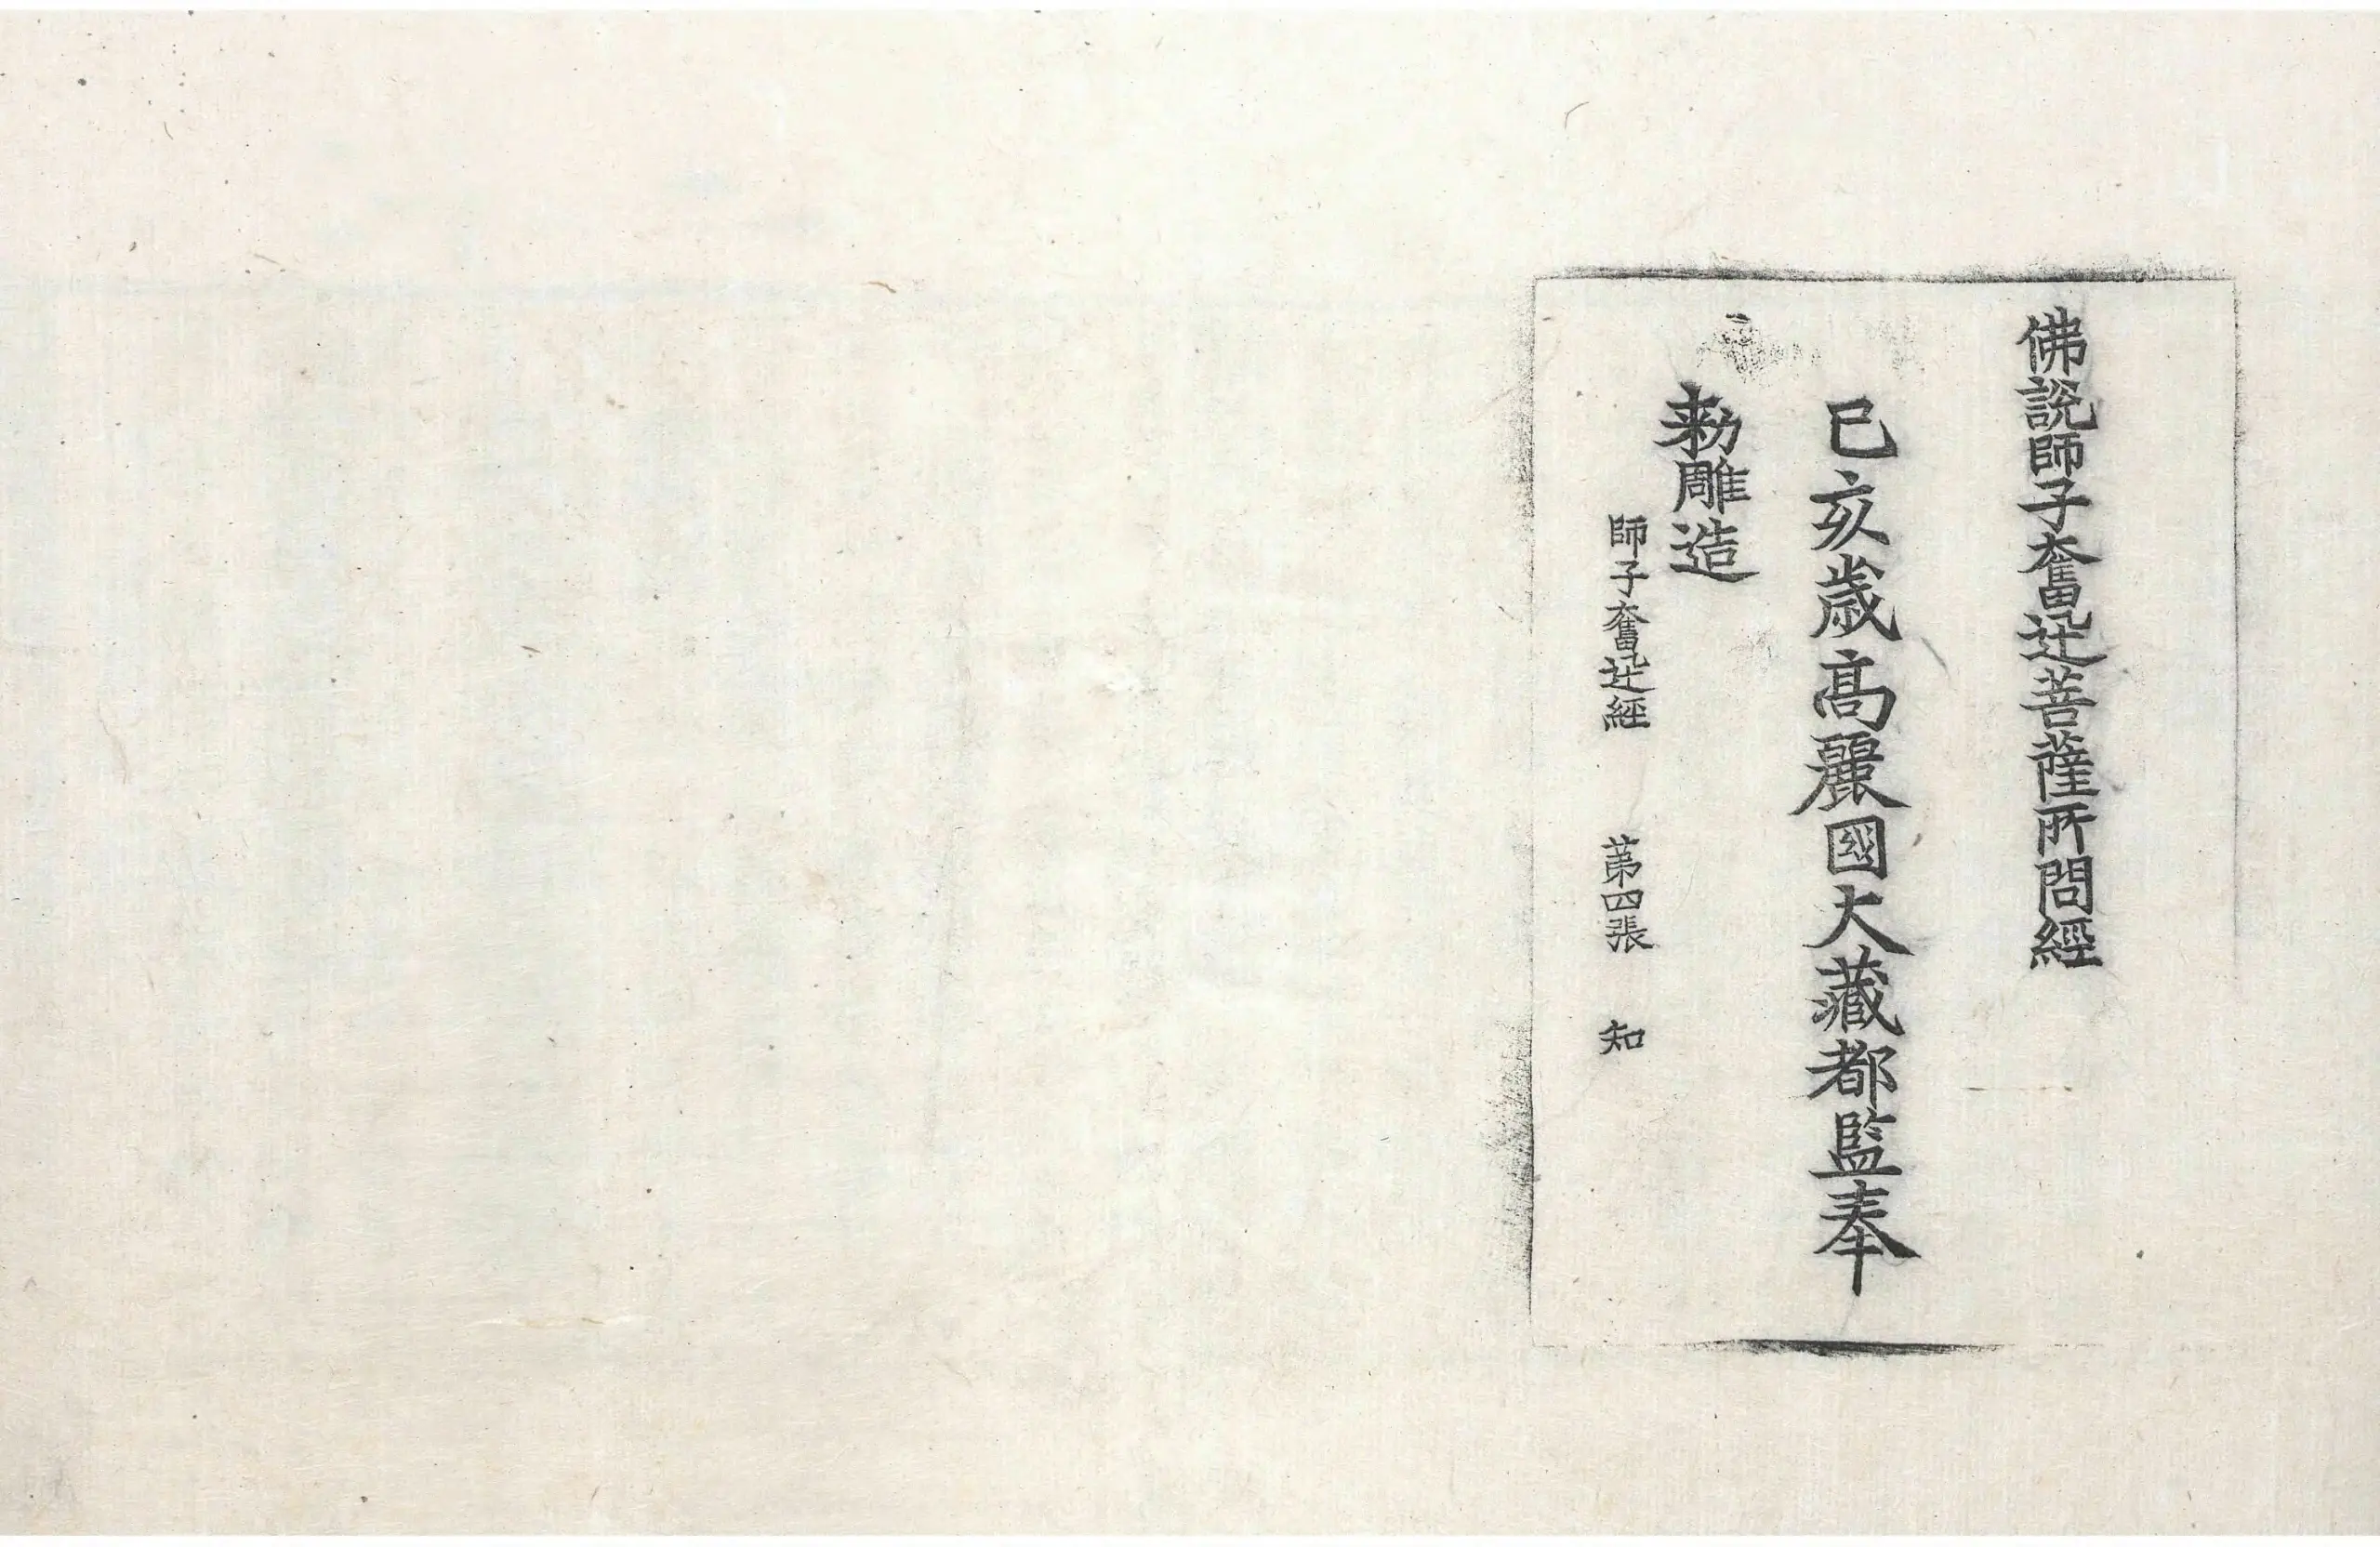 佛說師子奮迅菩薩所問經
己亥歲高麗國大藏都監奉
勅雕造
師子奮迅經 第四張 知